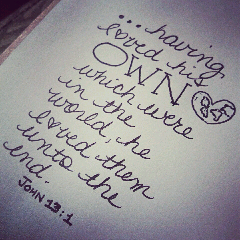 ...having
loved his
OWN
which were
in the
world, he
loved them
unto the
end.
JOHN 13:1